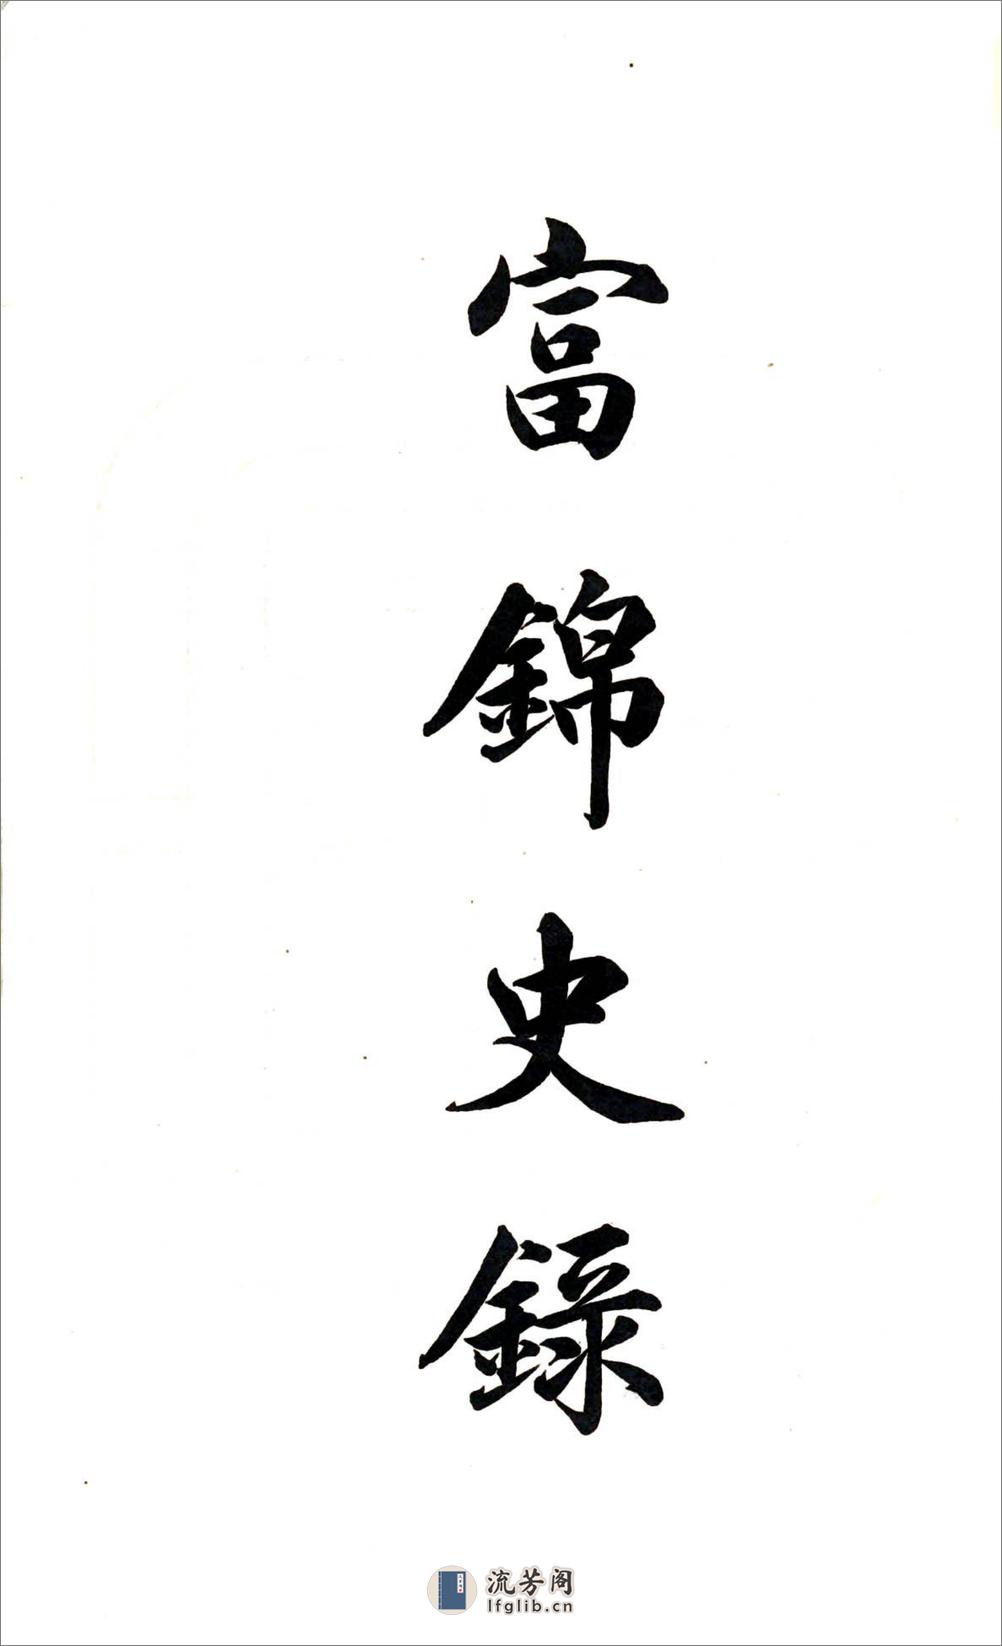 富錦史錄
流芳阁
lfglib.cn